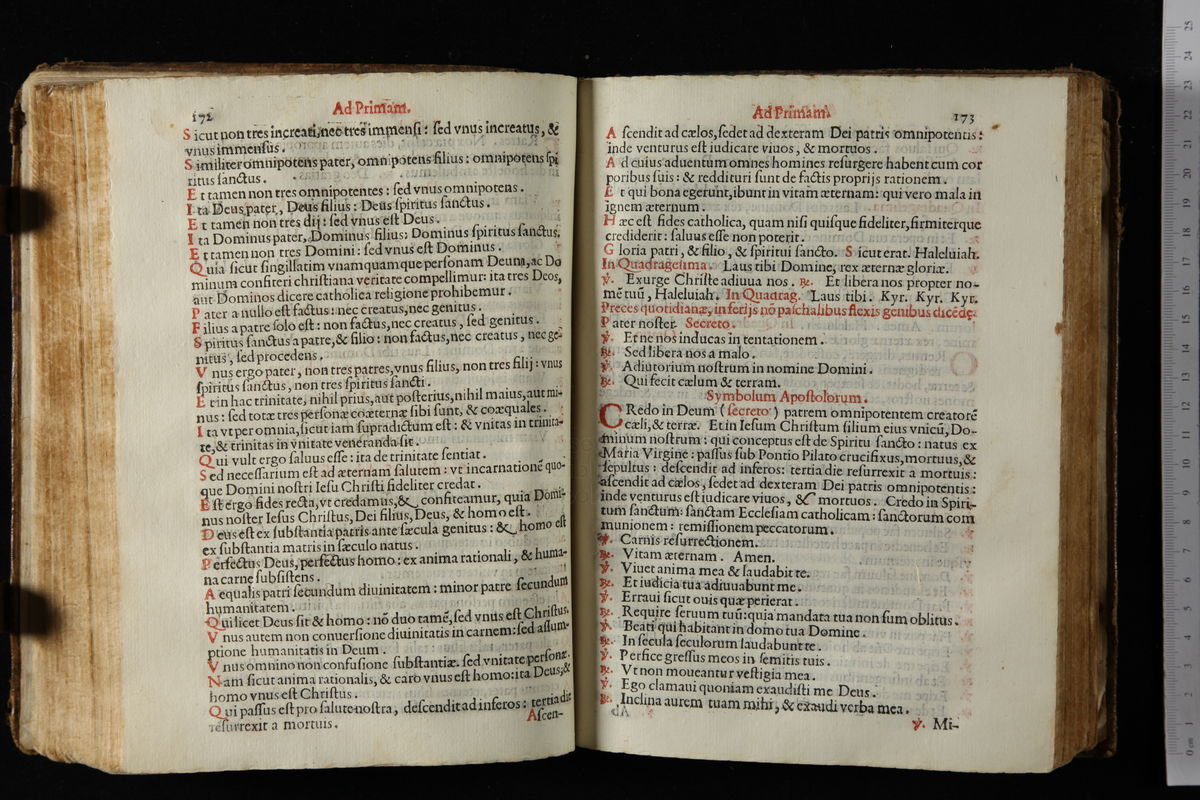 172
Ad Primam.
Sicut non tres increati, nec tres immensi: sed vnus increatus, &
vnus immensus.
Similiter omnipotens pater, omnipotens filius: omnipotens spi
ritus sanctus.
Et tamen non tres omnipotentes: sed vnus omnipotens.
Ita Deus pater, Deus filius: Deus spiritus sanctus.
Et tamen non tres dij: sed vnus est Deus.
Ita Dominus pater, Dominus filius: Dominus spiritus sanctus.
Et tamen non tres Domini: sed vnus est Dominus.
Quia sicut singillatim vnamquamque personam Deum, ac Do
minum confiteri christiana veritate compellimur: ita tres Deos,
aut Dominos dicere catholica religione prohibemur.
Pater a nullo est factus: nec creatus, nec genitus.
Filius a patre solo est: non factus, nec creatus, sed genitus.
Spiritus sanctus a patre, & filio: non factus, nec creatus, nec ge-
nitus, sed procedens.
Vnus ergo pater, non tres patres, vnus filius, non tres filij: vnus
spiritus sanctus, non tres spiritus sancti.
Et in hac trinitate, nihil prius, aut posterius, nihil maius, aut mi-
nus: sed totæ tres personæ coæternæ sibi sunt, & coæquales.
Ita vt per omnia, sicut iam supradictum est: & vnitas in trinita-
te, & trinitas in vnitate veneranda sit.
Qui vult ergo saluus esse: ita de trinitate sentiat.
Sed necessarium est ad æternam salutem: vt incarnationē quo-
que Domini nostri Iesu Christi fideliter credat.
Est ergo fides recta, vt credamus, & confiteamur, quia Domi-
nus noster Iesus Christus, Dei filius, Deus, & homo est.
Deus est ex substantia patris ante sæcula genitus: & homo est
ex substantia matris in sæculo natus.
Perfectus Deus, perfectus homo: ex anima rationali, & huma-
na carne subsistens.
Aequalis patri secundum diuinitatem: minor patre secundum
humanitatem.
Qui licet Deus sit & homo: nō duo tamē, sed vnus est Christus.
Vnus autem non conuersione diuinitatis in carnem: sed assum-
ptione humanitatis in Deum.
Vnus omnino non confusione substantiæ. sed vnitate personæ.
Nam sicut anima rationalis, & caro vnus est homo: ita Deus, &
homo vnus est Christus.
Qui passus est pro salute nostra, descendit ad inferos: tertia die
resurrexit a mortuis.
Ascen-
Ad Primam.
173
Ascendit ad cælos, sedet ad dexteram Dei patris omnipotentis:
inde venturus est iudicare viuos, & mortuos.
Ad cuius aduentum omnes homines resurgere habent cum cor
poribus suis: & reddituri sunt de factis proprijs rationem.
Et qui bona egerunt, ibunt in vitam æternam: qui vero mala in
ignem æternum.
Hæc est fides catholica, quam nisi quisque fideliter, firmiterque
crediderit: saluus esse non poterit.
Gloria patri, & filio, & spiritui sancto. Sicut erat. Haleluiah.
In Quadragesima. Laus tibi Domine, rex æternæ gloriæ.
℣. Exurge Christe adiuua nos. ℟. Et libera nos propter no-
mē tuū, Haleluiah. In Quadrag. Laus tibi. Kyr. Kyr. Kyr.
Preces quotidianæ, in ferijs nō paschalibus flexis genibus dicēdę.
Pater noster. Secreto.
℣. Et ne nos inducas in tentationem.
℟. Sed libera nos a malo.
℣. Adiutorium nostrum in nomine Domini.
℟. Qui fecit cælum & terram.
Symbolum Apostolorum.
CRedo in Deum (secreto) patrem omnipotentem creatorē
cæli, & terræ. Et in Iesum Christum filium eius vnicū, Do-
minum nostrum: qui conceptus est de Spiritu sancto: natus ex
Maria Virgine: passus sub Pontio Pilato crucifixus, mortuus, &
sepultus: descendit ad inferos: tertia die resurrexit a mortuis:
ascendit ad cælos, sedet ad dexteram Dei patris omnipotentis:
inde venturus est iudicare viuos, & mortuos. Credo in Spiri-
tum sanctum: sanctam Ecclesiam catholicam: sanctorum com
munionem: remissionem peccatorum.
℣. Carnis resurrectionem.
℟. Vitam æternam. Amen.
℣. Viuet anima mea & laudabit te.
℟. Et iudicia tua adiuuabunt me.
℣. Erraui sicut ouis quæ perierat.
℟. Require seruum tuū: quia mandata tua non sum oblitus.
℣. Beati qui habitant in domo tua Domine.
℟. In secula seculorum laudabunt te.
℣. Perfice gressus meos in semitis tuis.
℟. Vt non moueantur vestigia mea.
℣. Ego clamaui quoniam exaudisti me Deus.
℟. Inclina aurem tuam mihi, & exaudi verba mea.
℣. Mi-